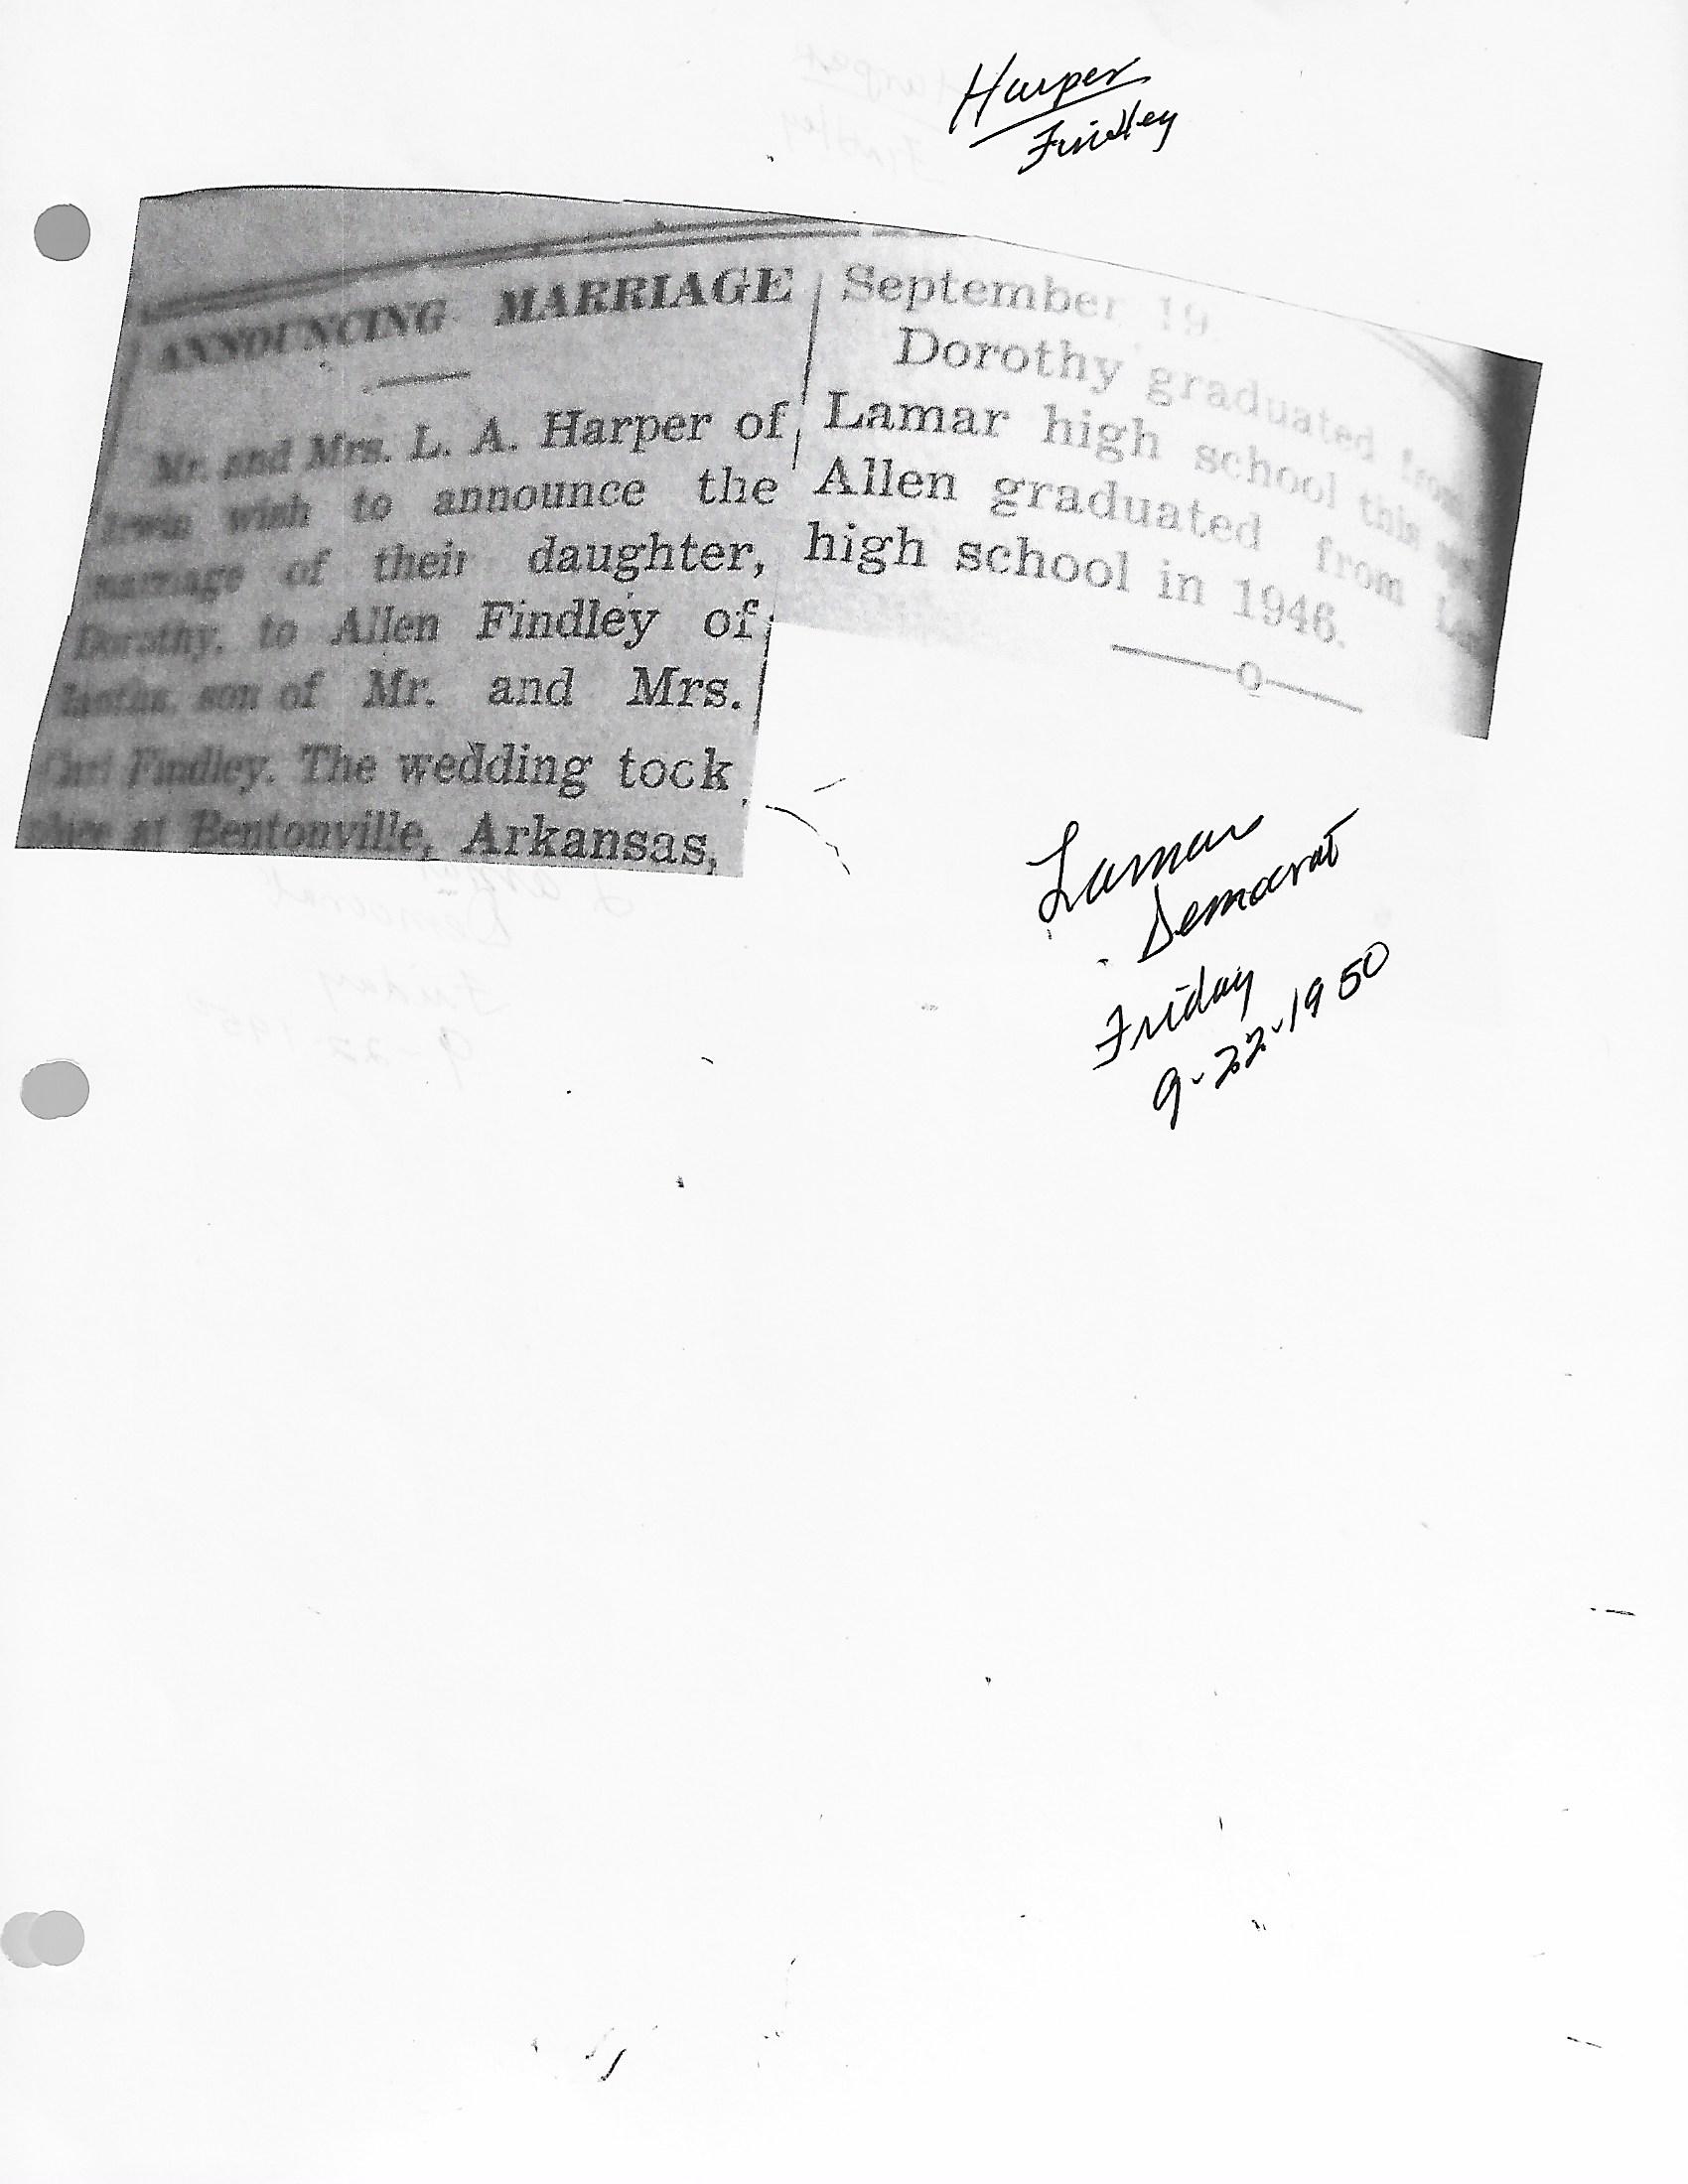 Harper
Findley
ANNOUNCING MARRIAGE
Mr. and Mrs. L. A. Harper of
Irwin wish to announce the
marriage of their daughter,
Dorothy, to Allen Findley of
Iantha, son of Mr. and Mrs.
Findley. The wedding tock
place at Bentonville, Arkansas,
September 19.
Dorothy graduated from
Lamar high school this
Allen graduated from
high school in 1946.
O
Lamar
Democrat
Friday
9-22-1950